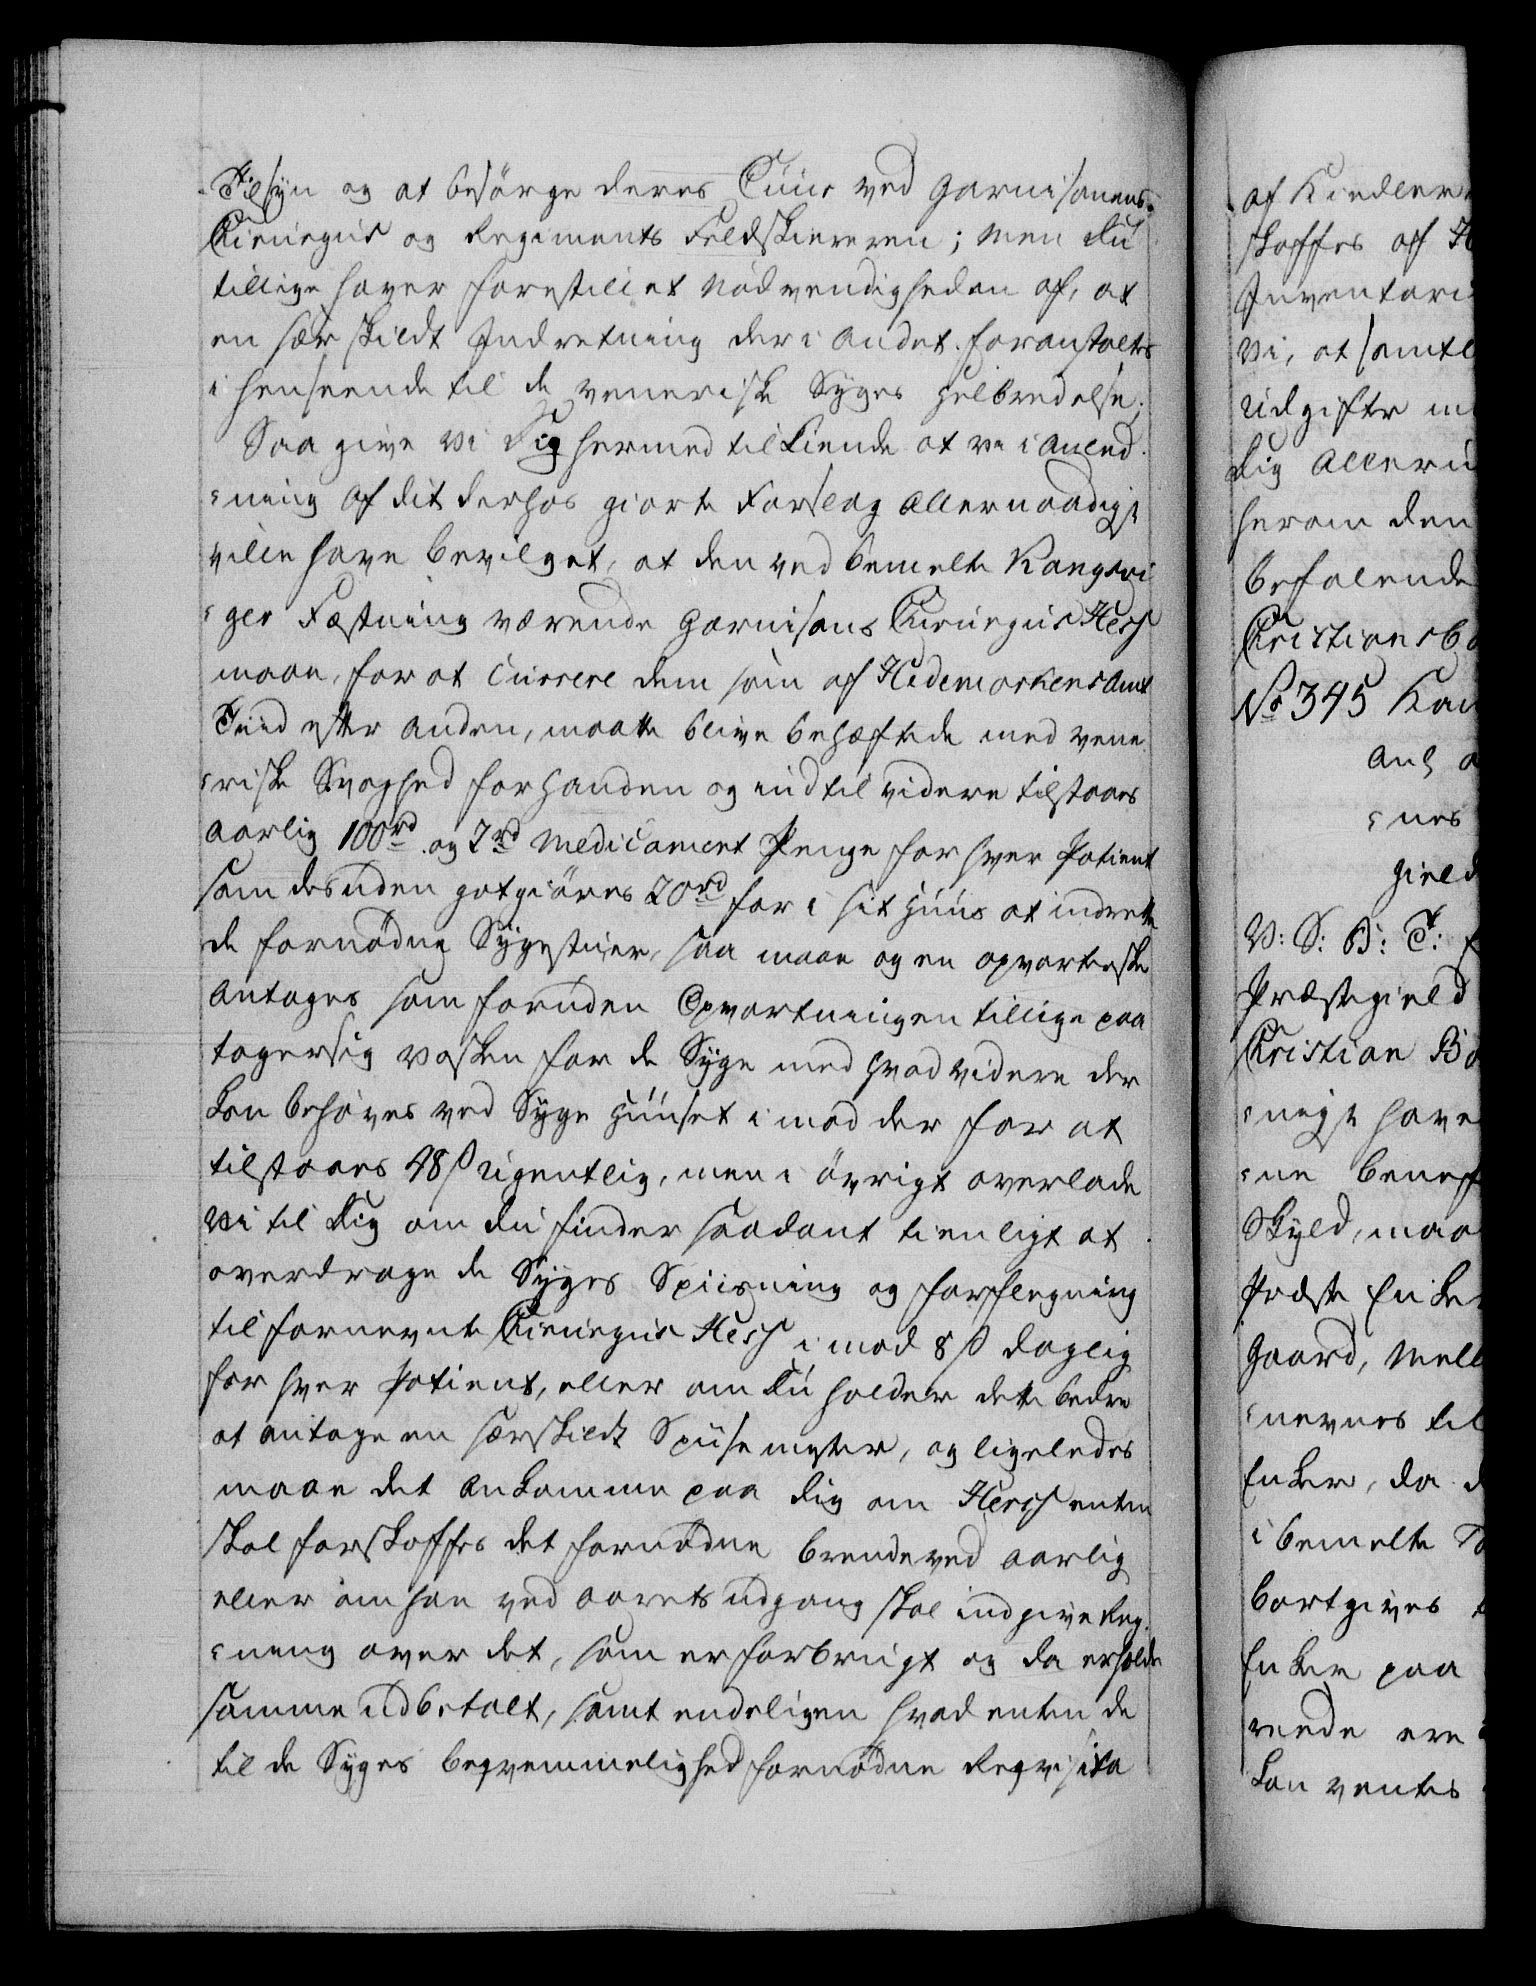 Tilsyn og at besörge deres Cuur ved Garnisonens
Chirurgus og Regiments Feldskiereren; Men Du
tillige haver forestillet Nödvendigheden af, at
en sær skildt Indretning der i Andet foranstaltes
i henseende til de veneriske Syges Helbredelse;
Saa give Vi Dig hermed tilkiende at vi i Anled
=ning af dit derhos giorte Forslag Allernaadigst
ville have bevilget, at den ved bemelte Kongsvi
=ger Fæstning værende Garnisons Chirurgus Hess
maae, for at Currere dem som af Hedemarkens Amt
Tiid efter anden, maatte blive behæftede med vene
=riske Svaghed forhanden og indtil videre tilstaaes
aarlig 100 rd og 7 rd Medicament Penge for hver Patient
som desuden gotgiöres 20 rd for i sit Huus at indrette
de fornödne Sÿgestuer, saa maae og en opvarterske
antages som foruden Opvartningen tillige paa
tager sig vasken for de Sÿge med hvad videre der
kan behöves ved Syge Huuset i mod der for at
tilstaaes 48 ß Ugentlig, men i övrigt overlade
Vi til Dig om du finder saadant tienligt at
overdrage de Sÿges Spiisning og forflegning
til fornevnte Chirurgus Hess i mod 8 ß daglig
for hver Patient, eller om Du holder dette bedre
at antage en særskildt Spiise mester, og ligeledes
maae det ankomme paa Dig om Hess enten
skal forskaffes det fornödne brendeved aarlig
eller om han ved aarets udgang skal indgive Reg
=ning over det, som er forbrugt og da erholde
samme udbetalt, samt endeligen hvad enten de
til de Syges beqvemmelighed fornödne Reqvisita
af Kiedler
skaffes af
Inventari
Vi, at samtl
Udgifter
Dig Alleru
herom den
befalende
Christiansb
No 345 Kan
=nes
gield
V: S: B: T:
Præstegield
Christian
=nigst have
=ne benef
Skyld, maa
Præste Enke
Gaard, Mell
=nevnes til
Enker, da
i bemelte
bortgives
Enker paa
rede ere
kan ventes